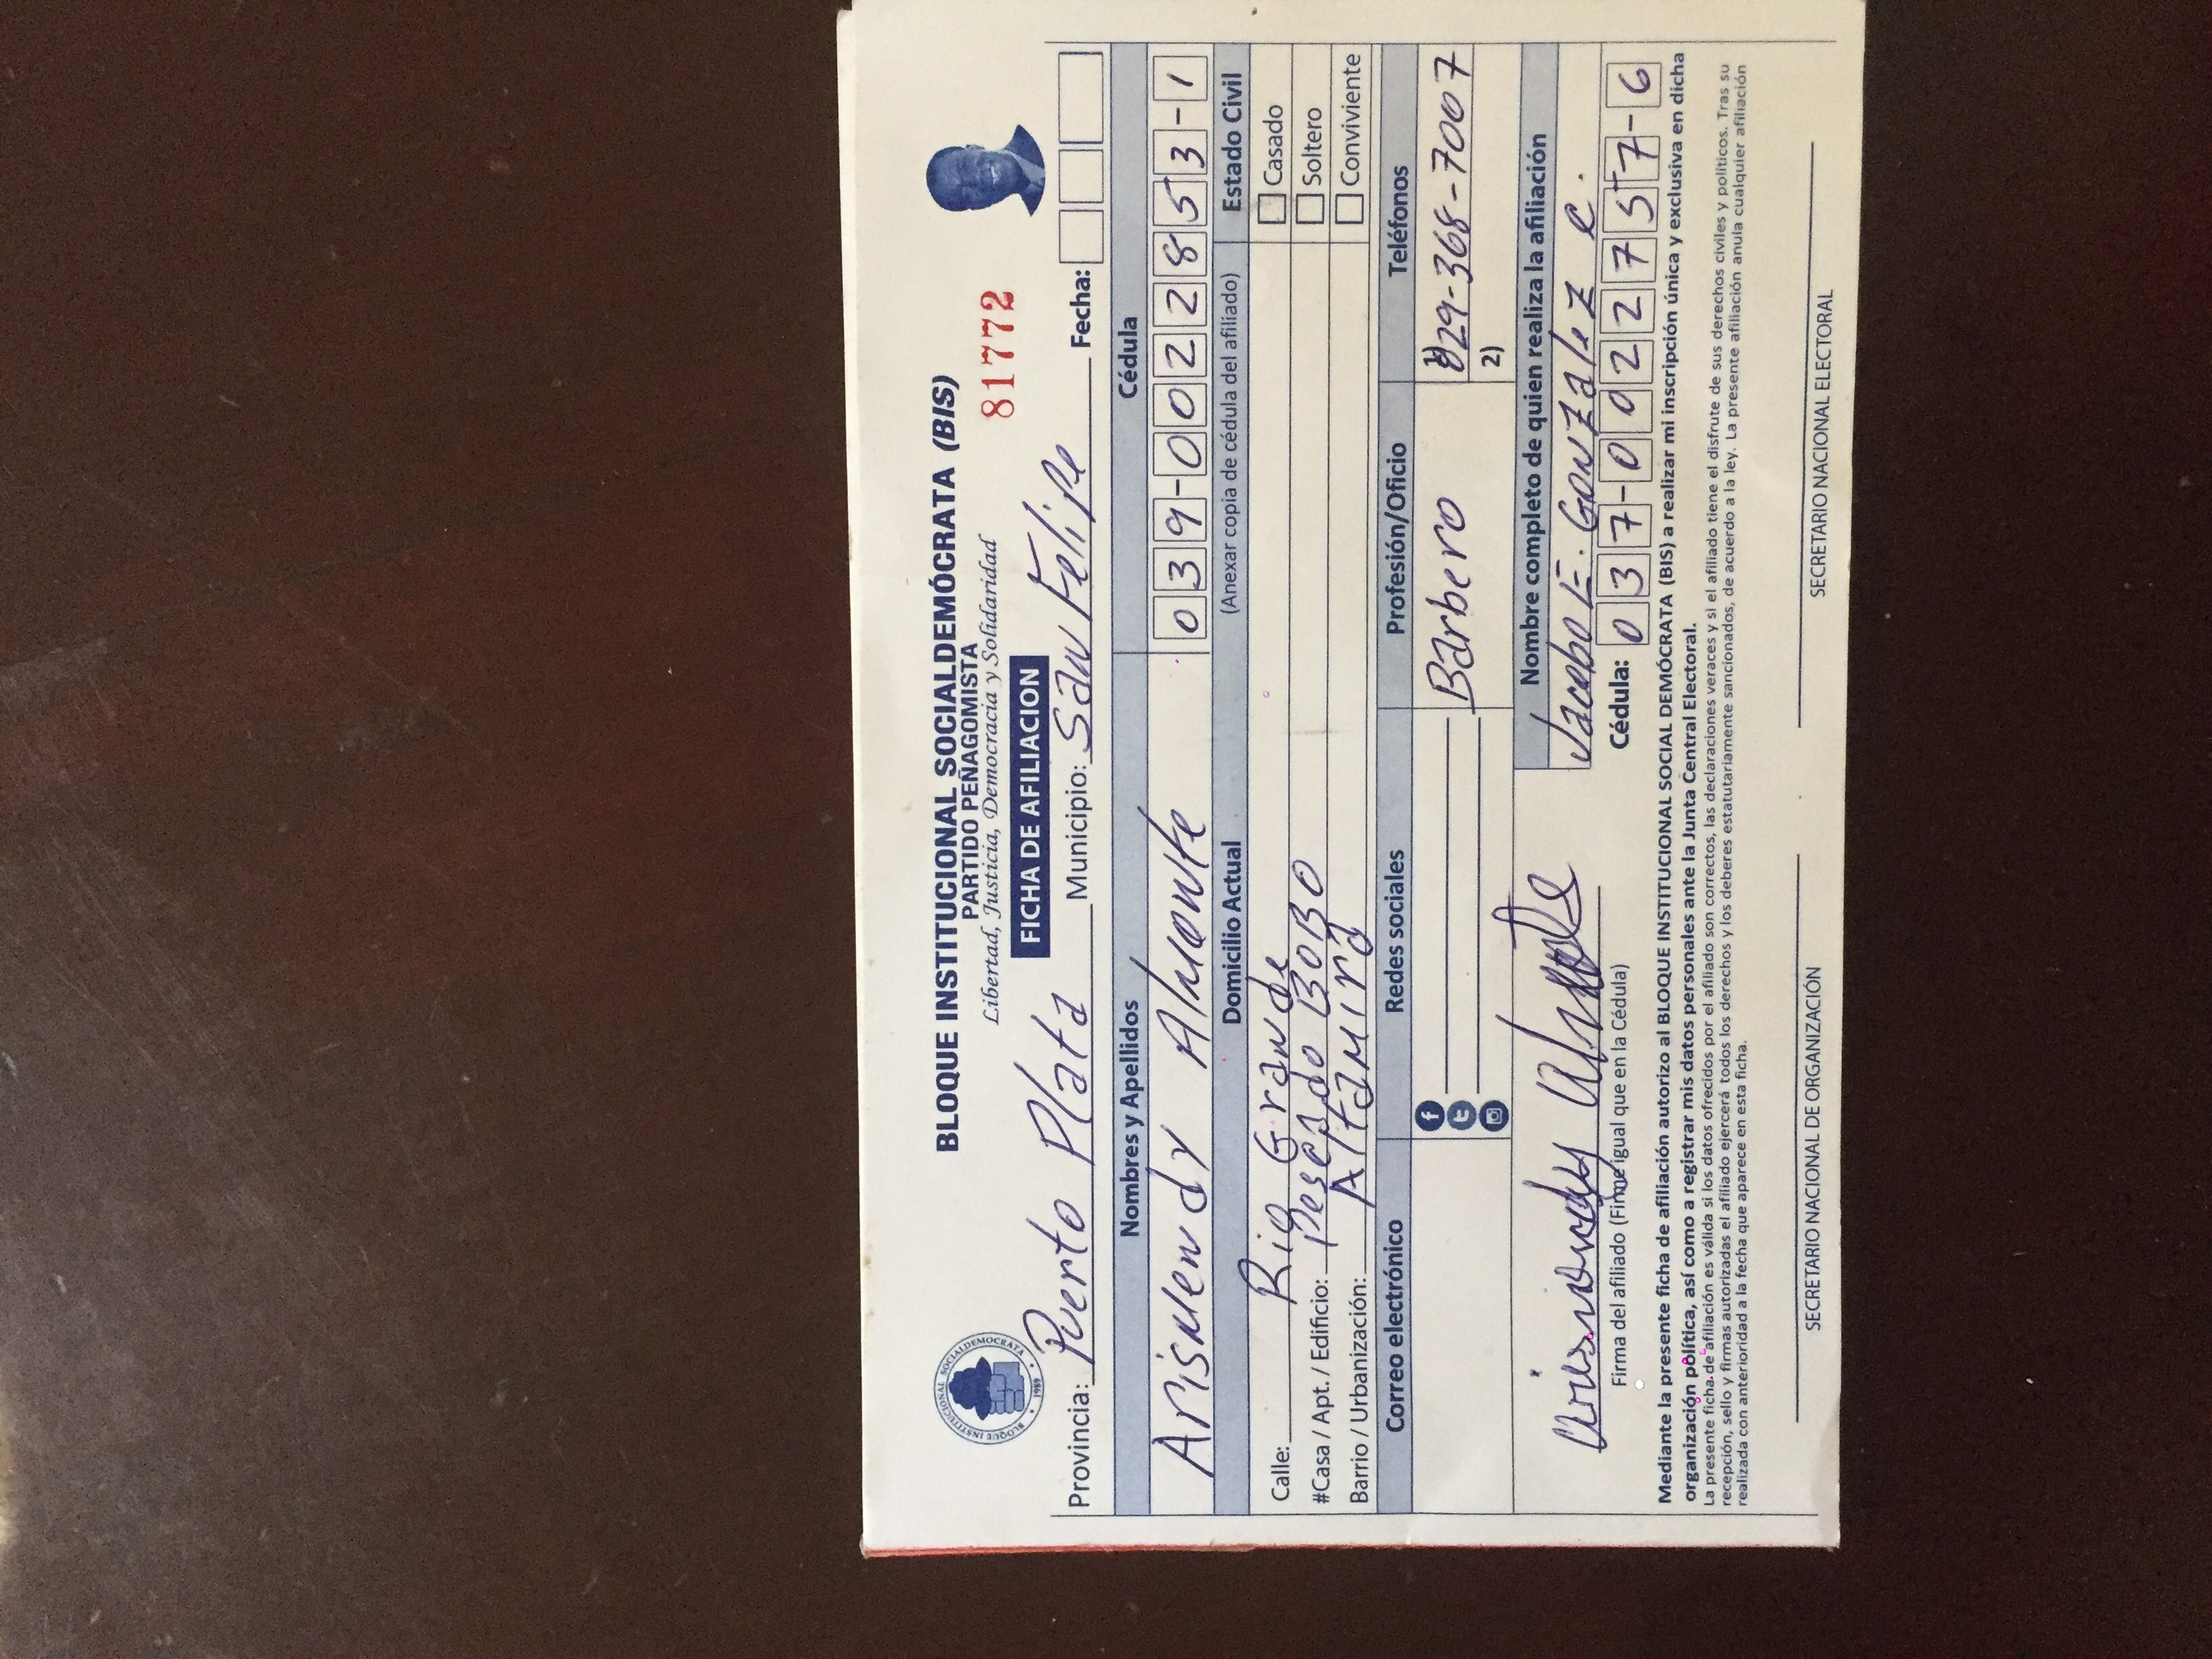 BLOQUE INSTITUCIONAL SOCIALDEMÓCRATA (BIS)
PARTIDO PEÑAGOMISTA
Libertad, Justicia, Democracia y Solidaridad
81772
FICHA DE AFILIACION
BLOQUE INSTITUCIONAL SOCIALDEMOCRATA
1989
Provincia: Puerto Plata Municipio: San Felipe Fecha:
Nombres y Apellidos Cédula
Arismendy Almonte 039-0022853-1
Domicilio Actual (Anexar copia de cédula del afiliado) Estado Civil
Calle: Rio Grande Casado
#Casa / Apt. / Edificio: Pescado BoBo Soltero
Barrio / Urbanización: Altamira Conviviente
Correo electrónico Redes sociales Profesión/Oficio Teléfonos
Barbero 1) 829-368-7007
2)
Nombre completo de quien realiza la afiliación
Jacobo E. Gonzalez C.
Arismendy Almonte
Firma del afiliado (Firme igual que en la Cédula) Cédula: 037-0022757-6
Mediante la presente ficha de afiliación autorizo al BLOQUE INSTITUCIONAL SOCIAL DEMÓCRATA (BIS) a realizar mi inscripción única y exclusiva en dicha
organización política, así como a registrar mis datos personales ante la Junta Central Electoral.
La presente ficha de afiliación es válida si los datos ofrecidos por el afiliado son correctos, las declaraciones veraces y si el afiliado tiene el disfrute de sus derechos civiles y políticos. Tras su
recepción, sello y firmas autorizadas el afiliado ejercerá todos los derechos y los deberes estatutariamente sancionados, de acuerdo a la ley. La presente afiliación anula cualquier afiliación
realizada con anterioridad a la fecha que aparece en esta ficha.
SECRETARIO NACIONAL DE ORGANIZACIÓN SECRETARIO NACIONAL ELECTORAL